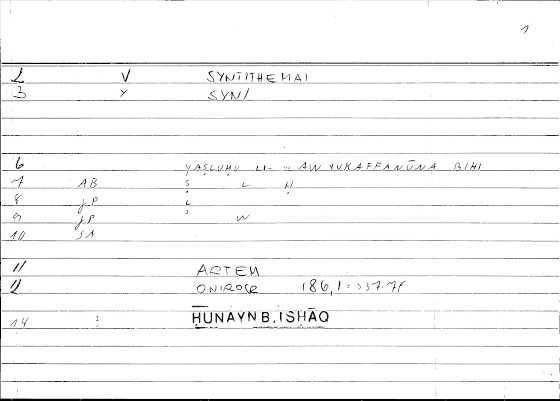 1
2 V SYNTITHEMAI
3 Y SYN/
6 YAṢLUḤU LI- .. AW YUKAFFANŪNA BIHI
7 AB Ṣ L Ḥ
8 JP L
9 JP W
10 SA
11 ARTEM
12 ONIROCR 186,1 = 337.7f
14 : ḤUNAYN B. ISḤĀQ